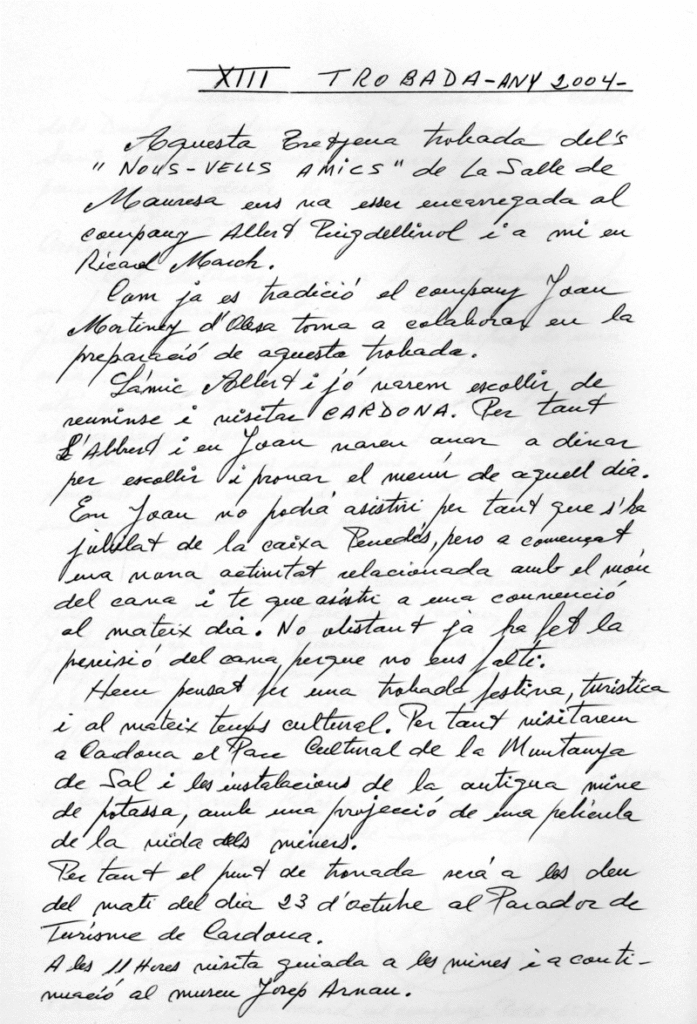 XIII TROBADA-ANY 2004-
Aquesta tretzena trobada del's
"NOUS-VELLS AMICS" de La Salle de
Manresa ens va esser encarregada al
company Albert Puigdellivol i a mi en
Ricard March.
Com ja es tradició el company Joan
Martinez d'Olesa torna a colaborar en la
preparació de aquesta trobada.
L'amic Albert i jó varem escollir de
reuninse i visitar CARDONA. Per tant
l'Albert i en Joan varen anar a dinar
per escollir i provar el menú de aquell dia.
En Joan no podrá asistiri per tant que s'ha
jubilat de la caixa Penedés, pero a començat
una nova activitat relacionada amb el món
del cava i te que asistri a una convenció
al mateix dia. No obstant ja ha fet la
provisió del cava perque no ens falti.
Hem pensat fer una trobada festiva, turistica
i al mateix temps cultural. Per tant visitarem
a Cardona el Parc Cultural de la Muntanya
de Sal i les instalacions de la antigua mine
de potassa, amb una projecció de una pelicula
de la vida dels miners.
Per tant el punt de trovada será a les deu
del mati del dia 23 d'octubre al Parador de
Turisme de Cardona.
A les 11 Hores visita guiada a les mines i a conti-
nuació al museu Josep Arnau.